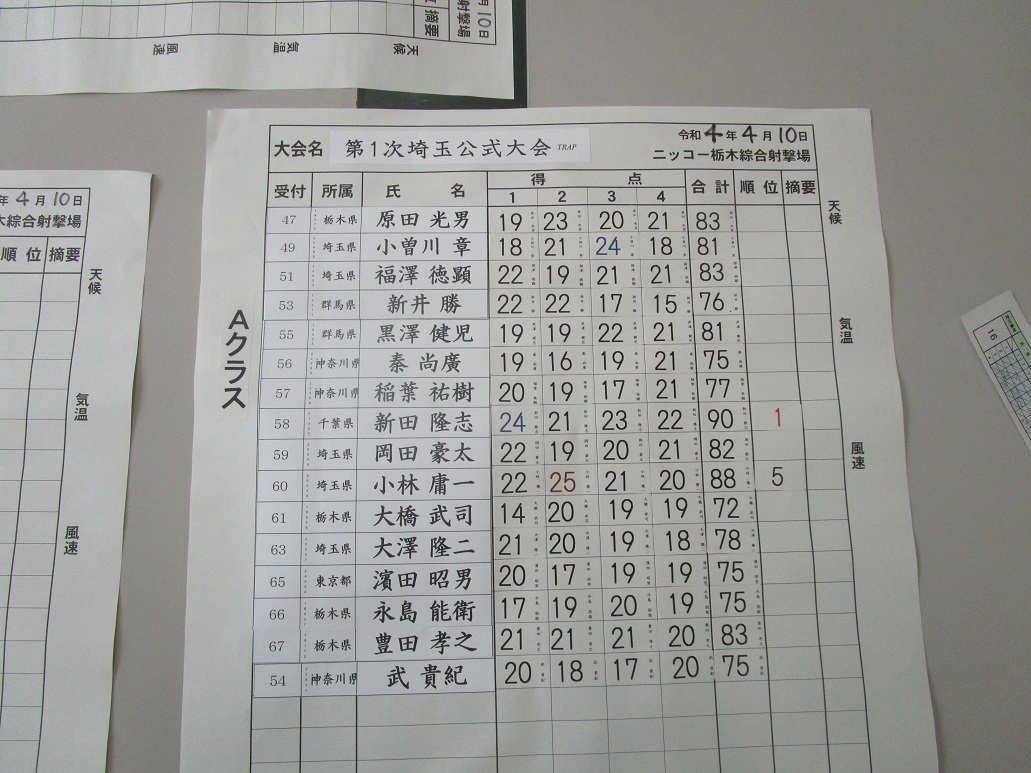 月10日
射撃場
摘要
天候
気温
風速
年 4月10日
木綜合射撃場
順 位 摘要
天候
気温
風速
大会名 第1次埼玉公式大会 TRAP
令和4年4月10日
ニッコー栃木綜合射撃場
受付 所属 氏 名 得 点 合計 順位 摘要
1 2 3 4
47 栃木県 原田 光男 19 23 20 21 83
49 埼玉県 小曽川 章 18 21 24 18 81
51 埼玉県 福澤 徳顕 22 19 21 21 83
53 群馬県 新井 勝 22 22 17 15 76
55 群馬県 黒澤 健児 19 19 22 21 81
56 神奈川県 秦 尚廣 19 16 19 21 75
57 神奈川県 稲葉 祐樹 20 19 17 21 77
58 千葉県 新田 隆志 24 21 23 22 90 1
59 埼玉県 岡田 豪太 22 19 20 21 82
60 埼玉県 小林 庸一 22 25 21 20 88 5
61 栃木県 大橋 武司 14 20 19 19 72
63 埼玉県 大澤 隆二 21 20 19 18 78
65 東京都 濱田 昭男 20 17 19 19 75
66 栃木県 永島 能衛 17 19 20 19 75
67 栃木県 豊田 孝之 21 21 21 20 83
54 神奈川県 武 貴紀 20 18 17 20 75
Aクラス
天候
気温
風速
16